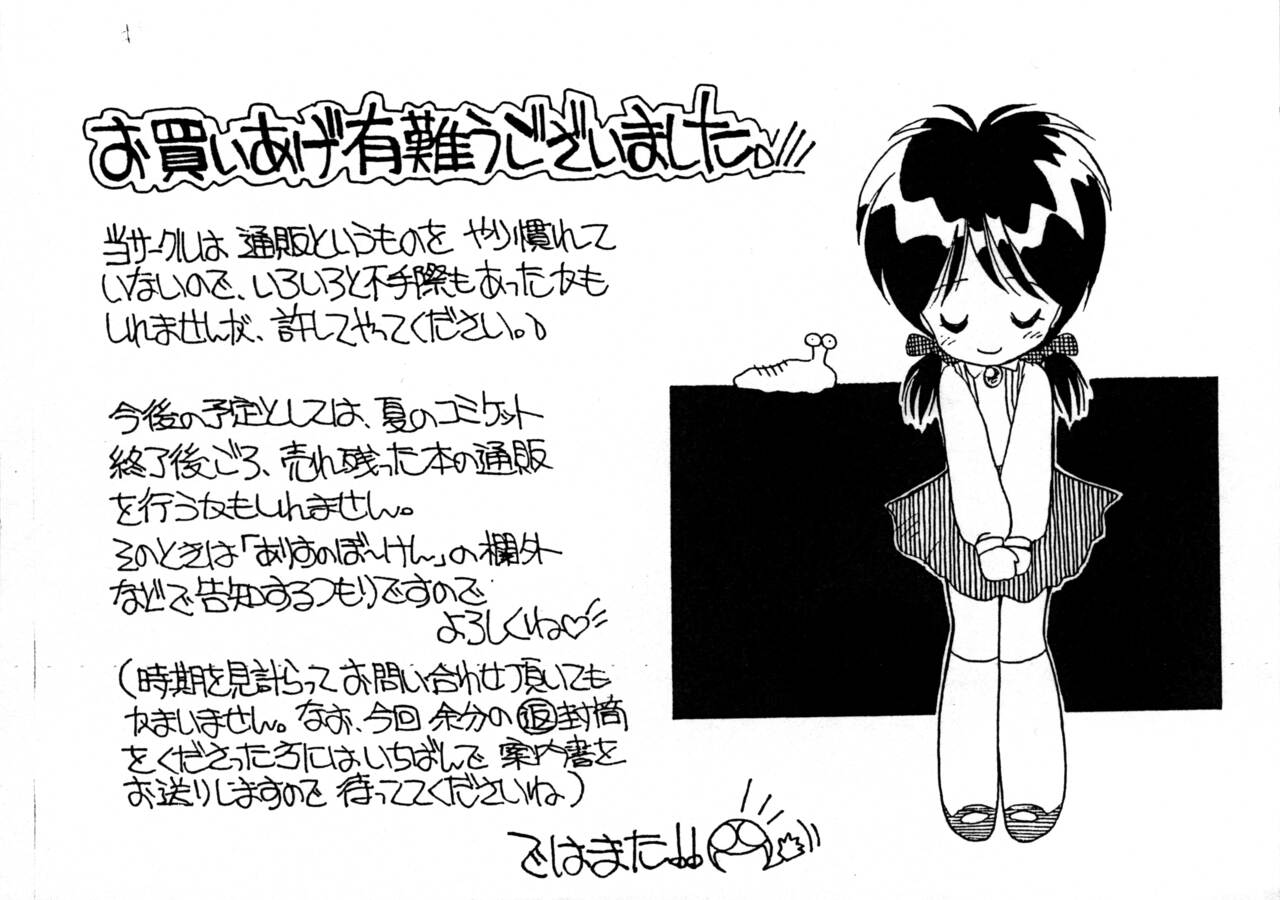 お買いあげ有難うございました。
当サークルは、通販というものを やり慣れて
いないので、いろいろと不手際もあったかも
しれませんが、許してやってください。
今後の予定としては、夏のコミケット
終了後ごろ、売れ残った本の通販
を行うかもしれません。
そのときは「ありすのぼーけん」の欄外
などで告知するつもりですので
よろしくね♡
(時期を見計らって お問い合わせ頂いても
かまいません。なお、今回 余分の 返封筒
をくださった方にはいちばんで 案内書を
お送りしますので 待っててくださいね)
ではまた!!